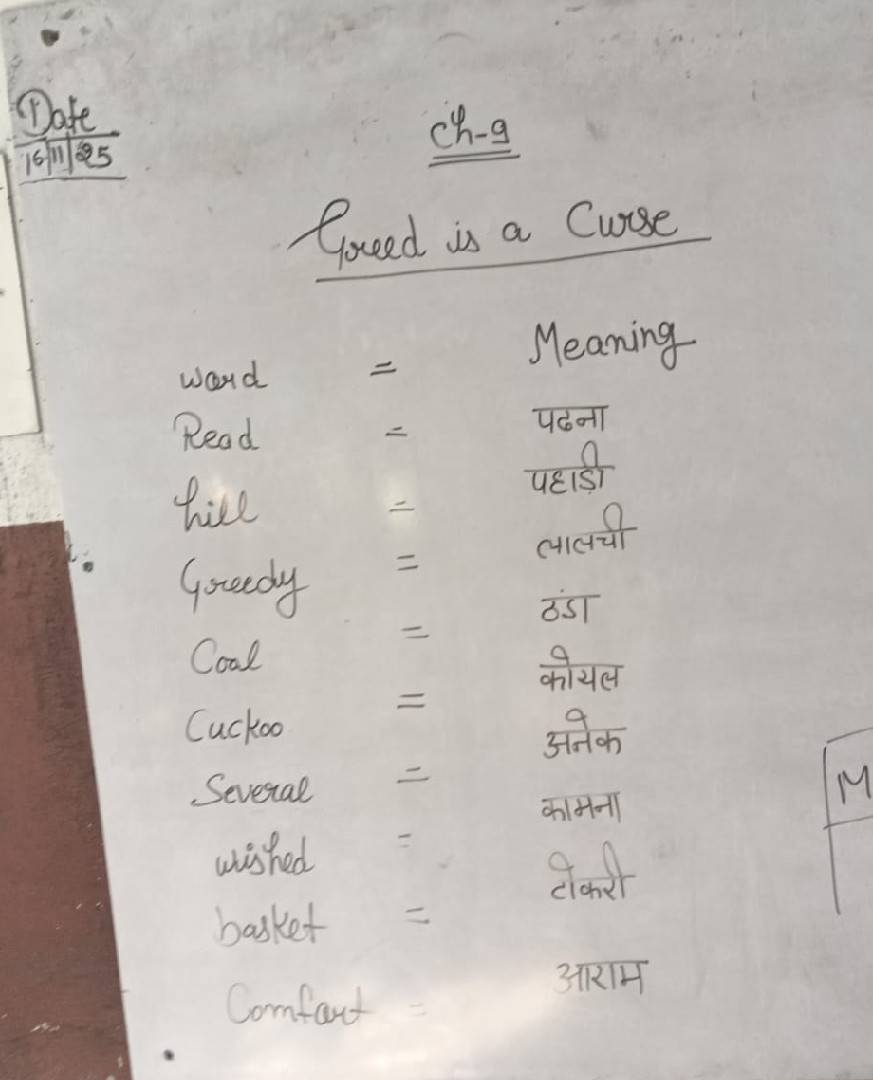 Date
16/11/25
Ch-9
Greed is a Curse
word = Meaning
Read = पढना
hill = पहाड़ी
Greedy = लालची
Coal = ठंडा
Cuckoo = कोयल
Several = अनेक
wished = कामना
basket = टोकरी
Comfort = आराम
M